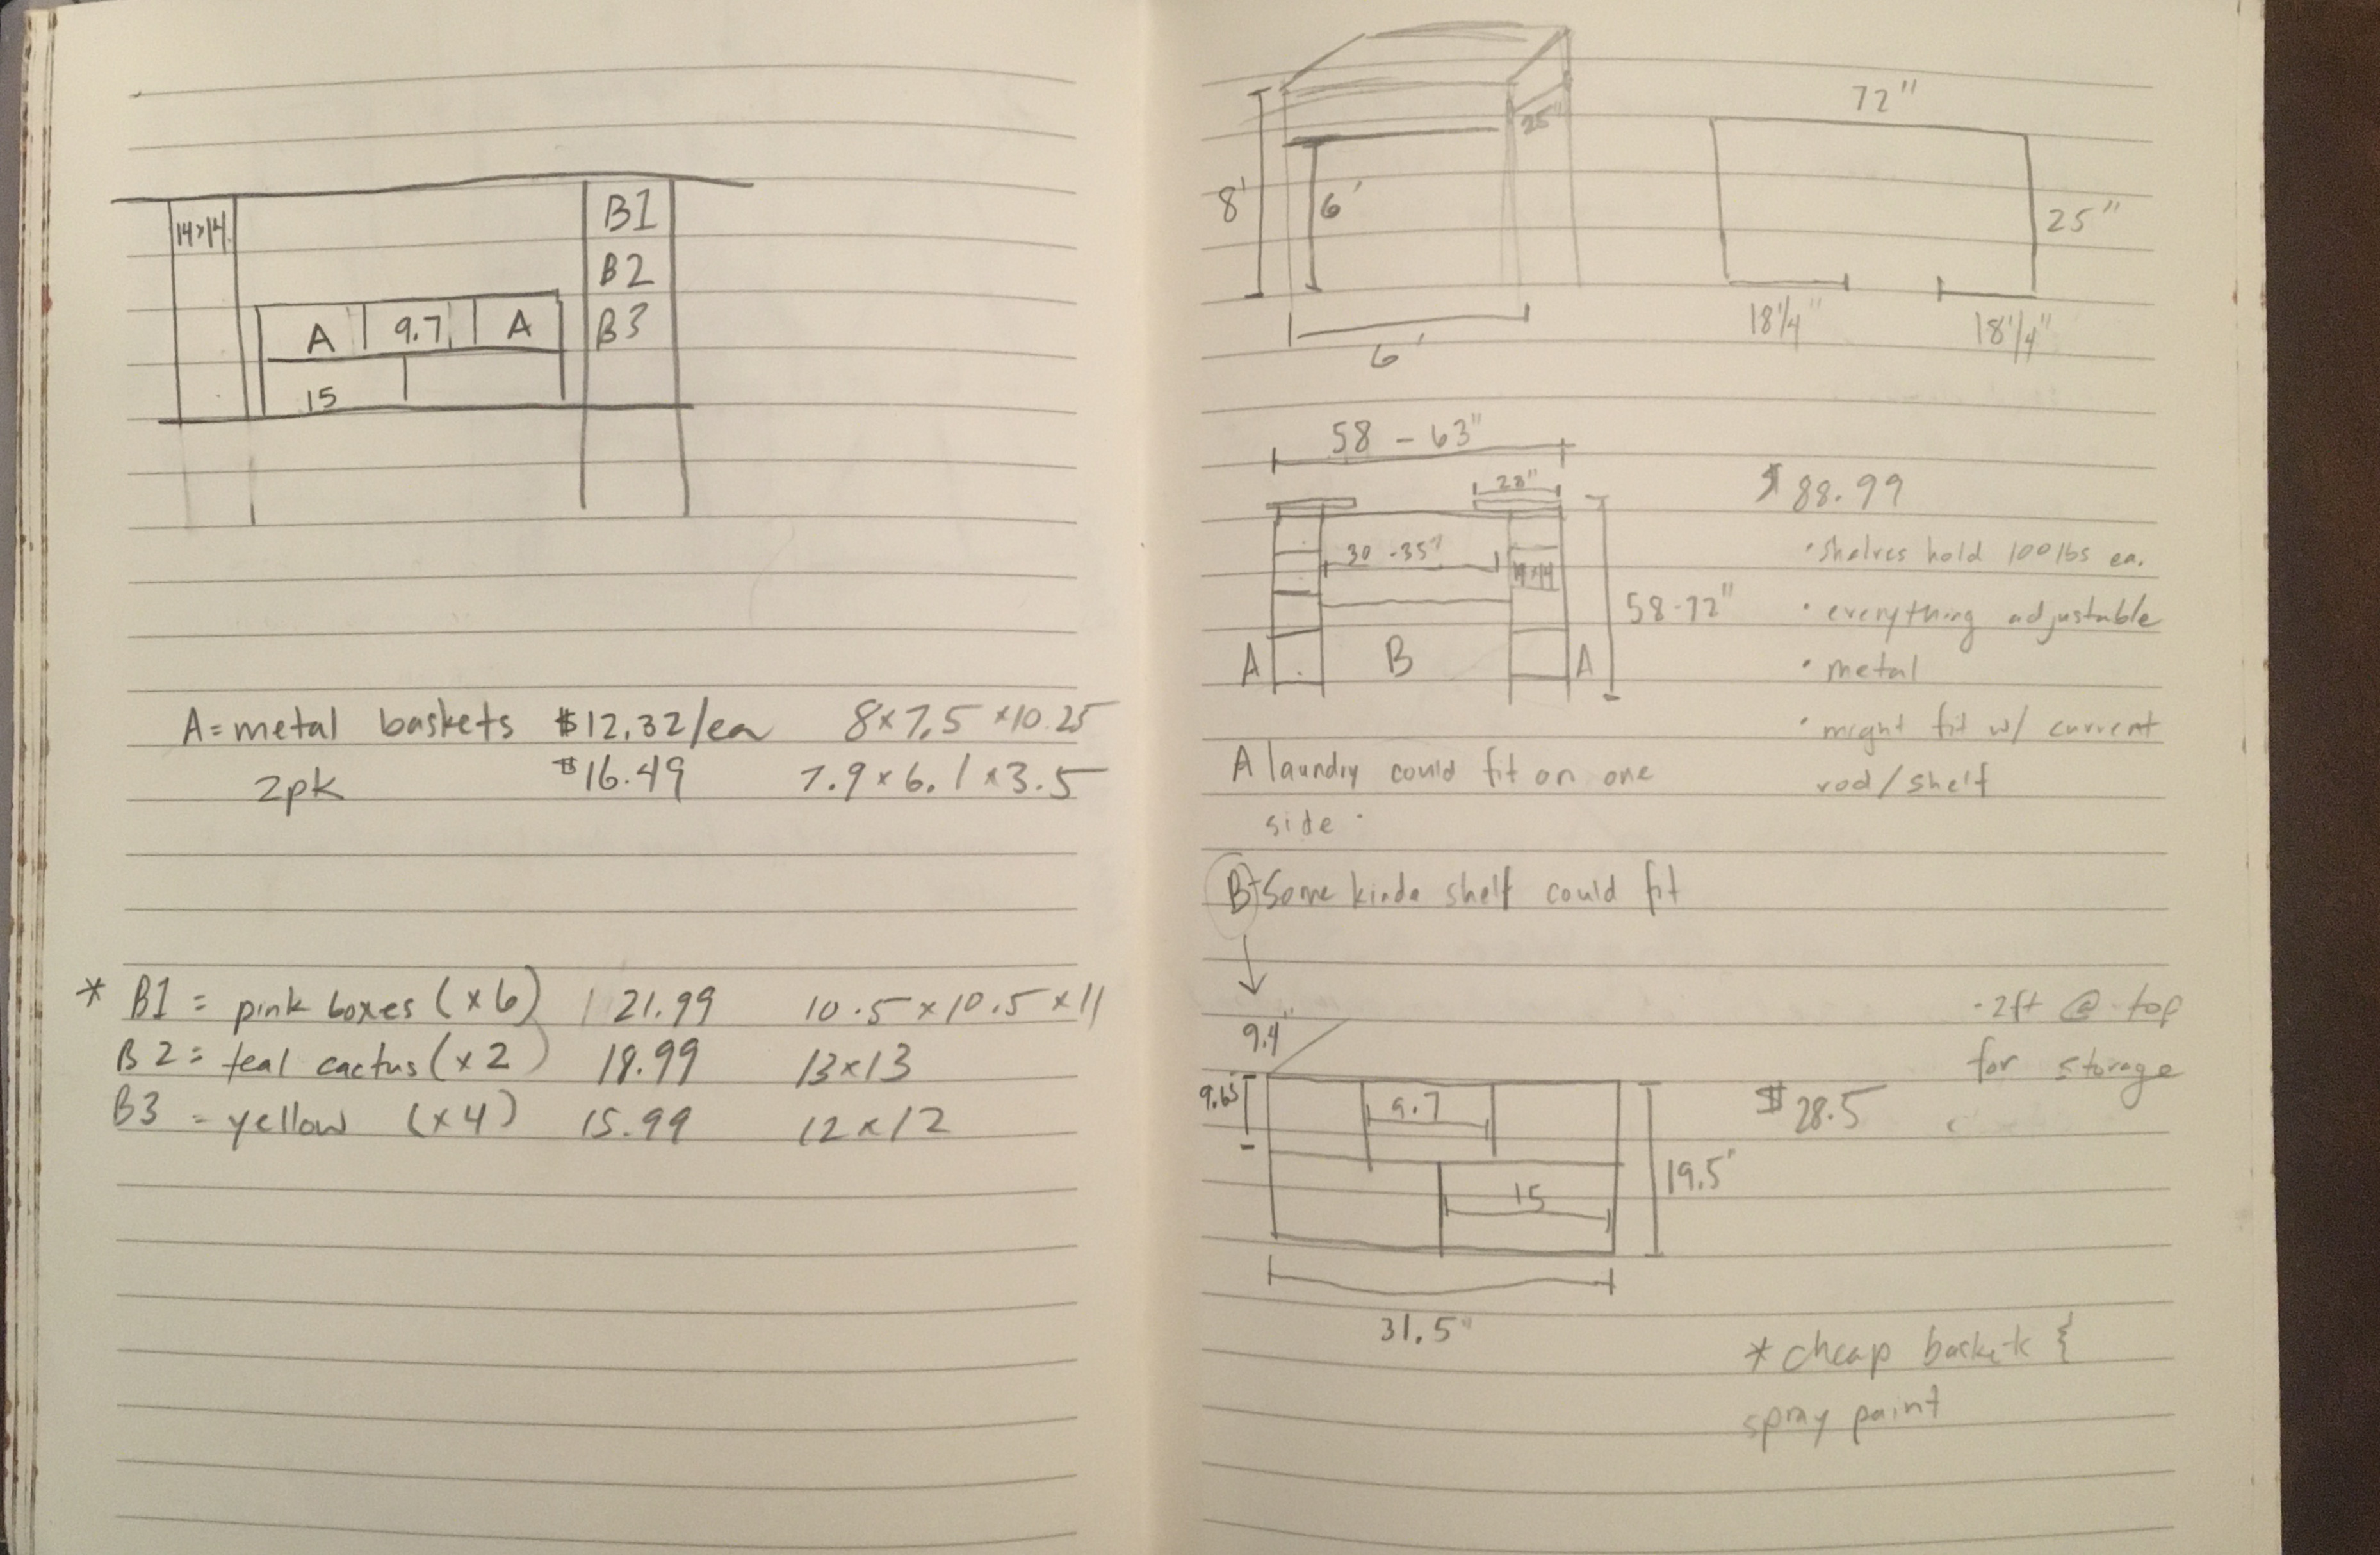 14x14
B1
B2
B3
A 9.7 A
15
A = metal baskets $12.32/ea 8x7.5x10.25
2pk $16.49 7.9x6.1x3.5
* B1 = pink boxes (x6) 21.99 10.5x10.5x11
B2 = teal cactus (x2) 18.99 13x13
B3 = yellow (x4) 15.99 12x12
25"
8'
6'
6'
72"
25"
18 1/4"
18 1/4"
58 - 63"
28"
30-35"
14x14
58-72"
A B A
$88.99
• shelves hold 100 lbs ea.
• everything adjustable
• metal
• might fit w/ current
rod/shelf
A laundry could fit on one
side.
B - Some kinda shelf could fit
- 2ft @ top
for storage
9.4"
9.65"
9.7
15
19.5"
31.5"
$28.5
* cheap basket &
spray paint